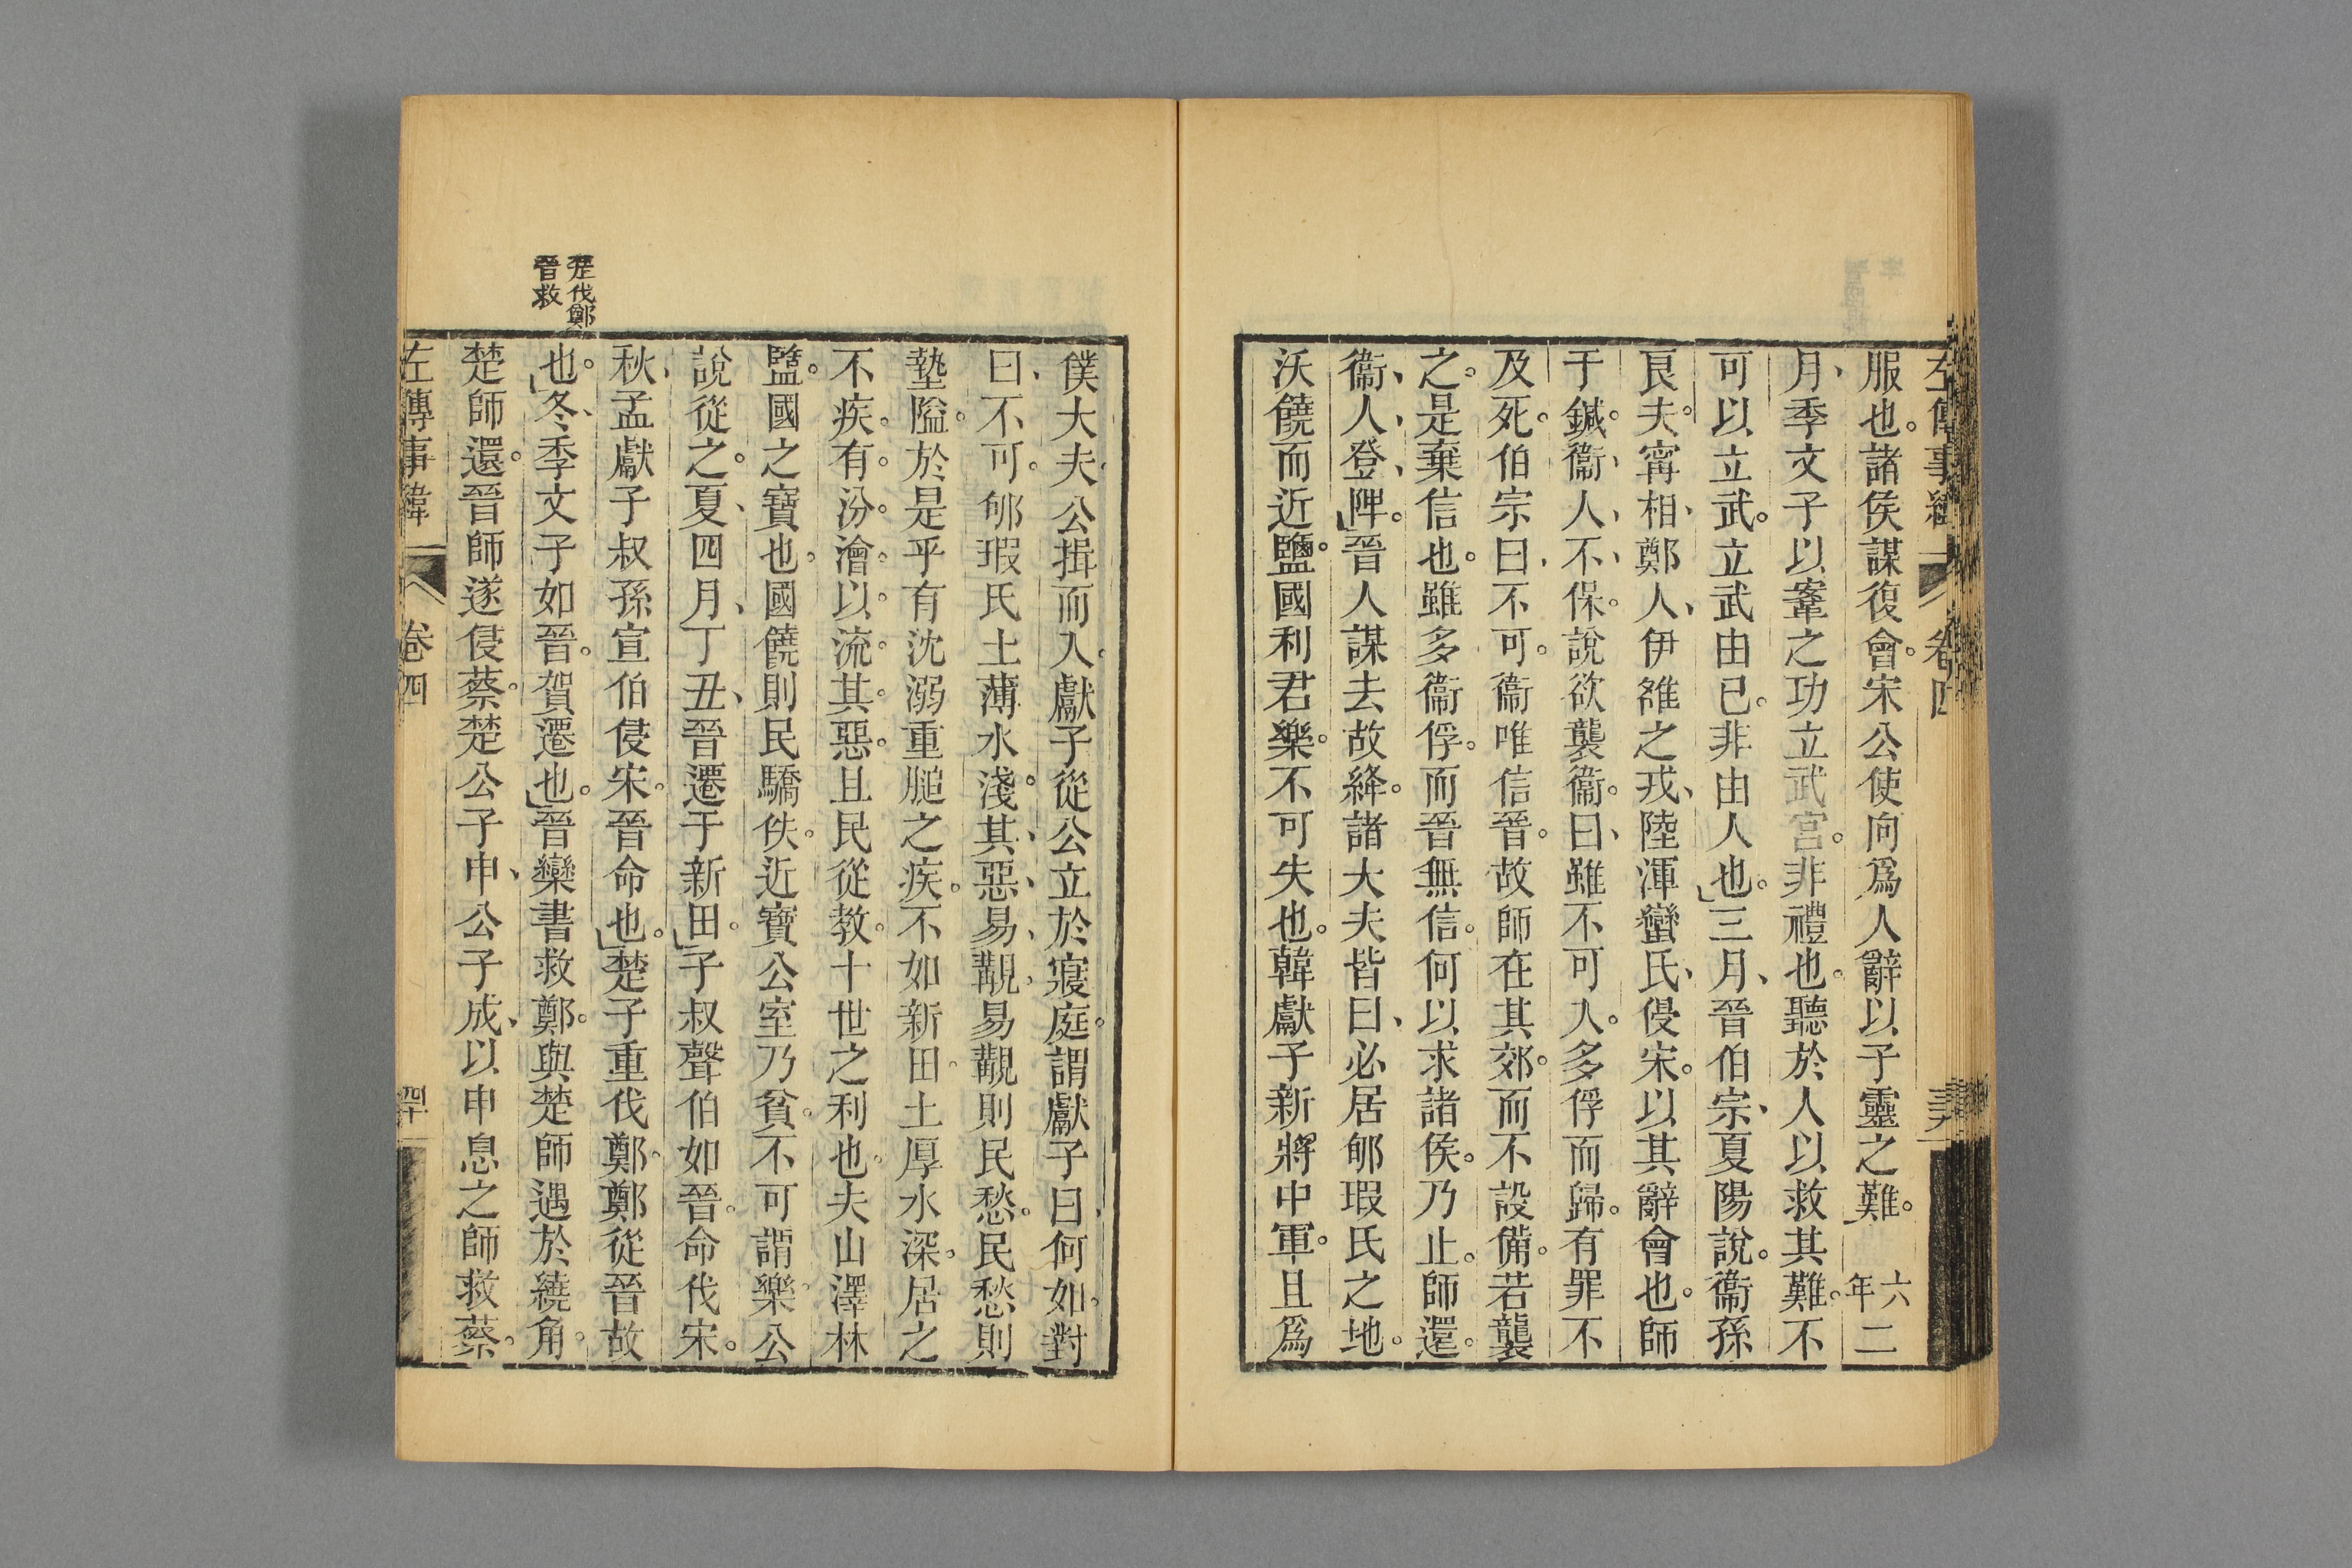 左傳事緯 卷四
服也。諸侯謀復會。宋公使向爲人辭以子靈之難。六年二
月、季文子以鞌之功立武宮。非禮也。聽於人以救其難。不
可以立武。立武由已。非由人也。三月、晉伯宗、夏陽說。衞孫
良夫。甯相、鄭人、伊雒之戎、陸渾蠻氏、侵宋。以其辭會也。師
于鍼。衞人、不保。說欲襲衞。曰、雖不可入。多俘而歸。有罪不
及死。伯宗曰、不可。衞唯信晉。故師在其郊。而不設備。若襲
之。是棄信也。雖多衞俘。而晉無信。何以求諸侯。乃止。師還。
衞、人、登、陴。晉人謀去故絳。諸大夫皆曰、必居郇瑕氏之地。
沃饒而近鹽。國利君樂。不可失也。韓獻子新將中軍。且爲
僕大夫。公揖而入。獻子從公立於寢庭。謂獻子曰、何如。對
曰、不可。郇瑕氏土薄水淺。其、惡、易、覯、易覯則民愁。民愁則
墊隘。於是乎有沈溺重膇之疾。不如新田。土厚水深。居之
不疾。有。汾。澮。以。流。其。惡。且民從教。十世之利也。夫山澤林
鹽。國之寶也。國饒則民驕佚。近寶公室乃貧。不可謂樂。公
說從之。夏、四月、丁丑、晉遷于新田。子叔聲伯如晉。命伐宋。
秋、孟獻子叔孫宣伯侵宋。晉命也。楚子重伐鄭。鄭從晉故
也。冬、季文子如晉。賀遷也。晉欒書救鄭。與楚師遇於繞角。
楚師還。晉師遂侵蔡。楚公子申、公子成、以申息之師救蔡。
楚伐鄭
晉救
左傳事緯 卷四 四十